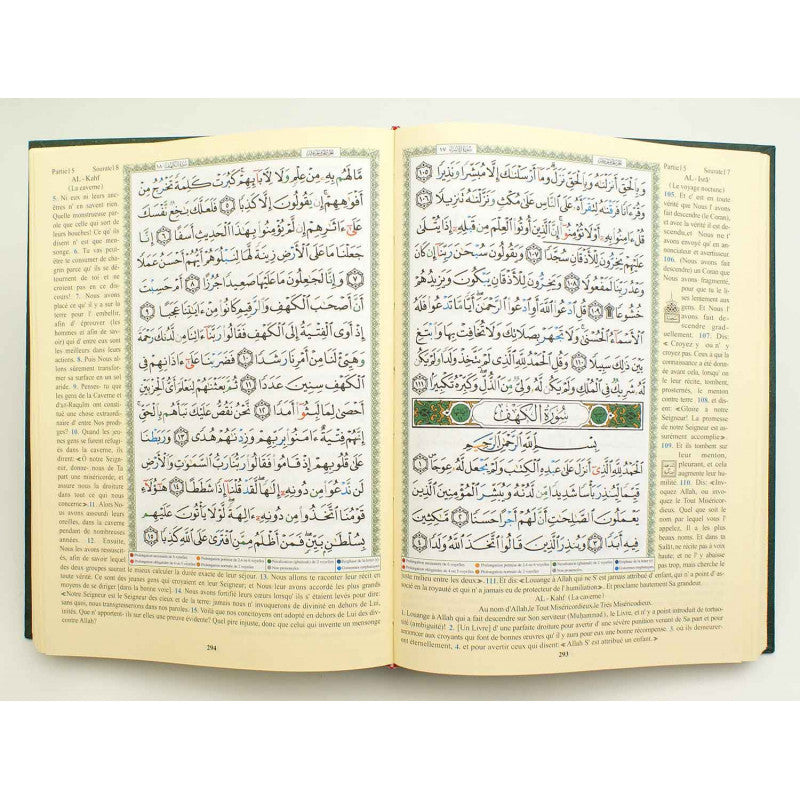 الجزء الخامس عشر
سورة الإسراء ١٧
وَبِالْحَقِّ أَنزَلْنَٰهُ وَبِالْحَقِّ نَزَلَ وَمَا أَرْسَلْنَٰكَ إِلَّا مُبَشِّرًا وَنَذِيرًا ١٠٥
وَقُرْءَانًا فَرَقْنَٰهُ لِتَقْرَأَهُ عَلَى النَّاسِ عَلَىٰ مُكْثٍ وَنَزَّلْنَٰهُ تَنزِيلًا ١٠٦
قُلْ ءَامِنُوا بِهِ أَوْ لَا تُؤْمِنُوا إِنَّ الَّذِينَ أُوتُوا الْعِلْمَ مِن قَبْلِهِ إِذَا يُتْلَىٰ
عَلَيْهِمْ يَخِرُّونَ لِلْأَذْقَانِ سُجَّدًا ١٠٧ وَيَقُولُونَ سُبْحَٰنَ رَبِّنَا إِن كَانَ
وَعْدُ رَبِّنَا لَمَفْعُولًا ١٠٨ وَيَخِرُّونَ لِلْأَذْقَانِ يَبْكُونَ وَيَزِيدُهُمْ
خُشُوعًا ۩ ١٠٩ قُلِ ادْعُوا اللَّهَ أَوِ ادْعُوا الرَّحْمَٰنَ أَيًّا مَّا تَدْعُوا فَلَهُ
الْأَسْمَاءُ الْحُسْنَىٰ وَلَا تَجْهَرْ بِصَلَاتِكَ وَلَا تُخَافِتْ بِهَا وَابْتَغِ
بَيْنَ ذَٰلِكَ سَبِيلًا ١١٠ وَقُلِ الْحَمْدُ لِلَّهِ الَّذِي لَمْ يَتَّخِذْ وَلَدًا وَلَمْ يَكُن
لَّهُ شَرِيكٌ فِي الْمُلْكِ وَلَمْ يَكُن لَّهُ وَلِيٌّ مِّنَ الذُّلِّ وَكَبِّرْهُ تَكْبِيرًا ١١١
سُورَةُ الْكَهْفِ
بِسْمِ اللَّهِ الرَّحْمَٰنِ الرَّحِيمِ
الْحَمْدُ لِلَّهِ الَّذِي أَنزَلَ عَلَىٰ عَبْدِهِ الْكِتَٰبَ وَلَمْ يَجْعَل لَّهُ عِوَجَا ١
قَيِّمًا لِّيُنذِرَ بَأْسًا شَدِيدًا مِّن لَّدُنْهُ وَيُبَشِّرَ الْمُؤْمِنِينَ الَّذِينَ
يَعْمَلُونَ الصَّٰلِحَٰتِ أَنَّ لَهُمْ أَجْرًا حَسَنًا ٢ مَّٰكِثِينَ
فِيهِ أَبَدًا ٣ وَيُنذِرَ الَّذِينَ قَالُوا اتَّخَذَ اللَّهُ وَلَدًا ٤
Partie15 Sourate17
AL - Isrâ'
(Le voyage nocturne)
105. Et c'est en toute vérité que Nous l'avons fait descendre (le Coran), et avec la vérité il est descendu. et Nous ne t'avons envoyé qu'en annonciateur et avertisseur.
106. (Nous avons fait descendre) un Coran que Nous avons fragmenté, pour que tu le lises lentement aux gens. Et Nous l'avons fait descendre graduellement. 107. Dis: «Croyez y ou n'y croyez pas. Ceux à qui la connaissance a été donnée avant cela, lorsqu'on le leur récite, tombent, prosternés, le menton contre terre
108. et disent: «Gloire à notre Seigneur! La promesse de notre Seigneur est assurément accomplie».
109. Et ils tombent sur leur menton, pleurant, et cela augmente leur humilité. 110. Dis: «Invoquez Allah, ou invoquez le Tout Miséricordieux. Quel que soit le nom par lequel vous l'appelez, Il a les plus beaux noms. Et dans ta Salât, ne récite pas à voix haute; et ne l'y abaisse pas trop, mais cherche le
juste milieu entre les deux». 111. Et dis: «Louange à Allah qui ne S' est jamais attribué d' enfant, qui n'a point d'
associé en la royauté et qui n'a jamais eu de protecteur de l'humiliation». Et proclame hautement Sa grandeur.
AL - Kahf (La caverne)
Au nom d'Allah, le Tout Miséricordieux, le Très Miséricordieux.
1. Louange à Allah qui a fait descendre sur Son serviteur (Muḥammad), le Livre, et n'y a point introduit de tortuosité
(ambiguïté)! 2. [Un Livre] d' une parfaite droiture pour avertir d' une sévère punition venant de Sa part et pour
annoncer aux croyants qui font de bonnes œuvres qu' il y aura pour eux une bonne récompense. 3. où ils demeureront
éternellement, 4. et pour avertir ceux qui disent: « Allah S' est attribué un enfant.»
293
سورة الكهف ١٨
الجزء الخامس عشر
مَّا لَهُم بِهِ مِنْ عِلْمٍ وَلَا لِآبَائِهِمْ كَبُرَتْ كَلِمَةً تَخْرُجُ مِنْ
أَفْوَٰهِهِمْ إِن يَقُولُونَ إِلَّا كَذِبًا ٥ فَلَعَلَّكَ بَٰخِعٌ نَّفْسَكَ
عَلَىٰ ءَاثَٰرِهِمْ إِن لَّمْ يُؤْمِنُوا بِهَٰذَا الْحَدِيثِ أَسَفًا ٦ إِنَّا
جَعَلْنَا مَا عَلَى الْأَرْضِ زِينَةً لَّهَا لِنَبْلُوَهُمْ أَيُّهُمْ أَحْسَنُ عَمَلًا
٧ وَإِنَّا لَجَٰعِلُونَ مَا عَلَيْهَا صَعِيدًا جُرُزًا ٨ أَمْ حَسِبْتَ
أَنَّ أَصْحَٰبَ الْكَهْفِ وَالرَّقِيمِ كَانُوا مِنْ ءَايَٰتِنَا عَجَبًا ٩
إِذْ أَوَى الْفِتْيَةُ إِلَى الْكَهْفِ فَقَالُوا رَبَّنَا ءَاتِنَا مِن لَّدُنكَ رَحْمَةً
وَهَيِّئْ لَنَا مِنْ أَمْرِنَا رَشَدًا ١٠ فَضَرَبْنَا عَلَىٰ ءَاذَانِهِمْ فِي
الْكَهْفِ سِنِينَ عَدَدًا ١١ ثُمَّ بَعَثْنَٰهُمْ لِنَعْلَمَ أَيُّ الْحِزْبَيْنِ
أَحْصَىٰ لِمَا لَبِثُوا أَمَدًا ١٢ نَّحْنُ نَقُصُّ عَلَيْكَ نَبَأَهُم بِالْحَقِّ
إِنَّهُمْ فِتْيَةٌ ءَامَنُوا بِرَبِّهِمْ وَزِدْنَٰهُمْ هُدًى ١٣ وَرَبَطْنَا
عَلَىٰ قُلُوبِهِمْ إِذْ قَامُوا فَقَالُوا رَبُّنَا رَبُّ السَّمَٰوَٰتِ وَالْأَرْضِ
لَن نَّدْعُوَا مِن دُونِهِ إِلَٰهًا لَّقَدْ قُلْنَا إِذًا شَطَطًا ١٤ هَٰؤُلَاءِ
قَوْمُنَا اتَّخَذُوا مِن دُونِهِ ءَالِهَةً لَّوْلَا يَأْتُونَ عَلَيْهِم
بِسُلْطَٰنٍ بَيِّنٍ فَمَنْ أَظْلَمُ مِمَّنِ افْتَرَىٰ عَلَى اللَّهِ كَذِبًا ١٥
Partie15 Sourate18
AL - Kahf
(La caverne)
5. Ni eux ni leurs ancêtres n' en savent rien. Quelle monstrueuse parole que celle qui sort de leurs bouches! Ce qu' ils disent n' est que mensonge. 6. Tu vas peut-être te consumer de chagrin parce qu' ils se détournent de toi et ne croient pas en ce discours! 7. Nous avons placé ce qu' il y a sur la terre pour l' embellir, afin d' éprouver (les hommes et afin de savoir) qui d' entre eux sont les meilleurs dans leurs actions. 8. Puis Nous allons sûrement transformer sa surface en un sol aride. 9. Penses- tu que les gens de la Caverne et d'ar-Raquîm ont constitué une chose extraordinaire d' entre Nos prodiges? 10. Quand les jeunes gens se furent réfugiés dans la caverne, ils dirent: «Ô notre Seigneur, donne- nous de Ta part une miséricorde, et assure nous la droiture dans tout ce qui nous concerne». 11. Alors Nous avons assourdi leurs oreilles, dans la caverne pendant de nombreuses années. 12. Ensuite, Nous les avons ressuscités, afin de savoir lequel
des deux groupes saurait le mieux calculer la durée exacte de leur séjour. 13. Nous allons te raconter leur récit en
toute vérité. Ce sont des jeunes gens qui croyaient en leur Seigneur; et Nous leurs avons accordé les plus grands
moyens de se diriger [dans la bonne voie]. 14. Nous avons fortifié leurs cœurs lorsqu' ils s' étaient levés pour dire:
«Notre Seigneur est le Seigneur des cieux et de la terre: jamais nous n'invoquerons de divinité en dehors de Lui,
sans quoi, nous transgresserions dans nos paroles. 15. Voilà que nos concitoyens ont adopté en dehors de Lui des divinités.
Que n' apportent- ils sur elles une preuve évidente? Quel pire injuste, donc que celui qui invente un mensonge
contre Allah?
294